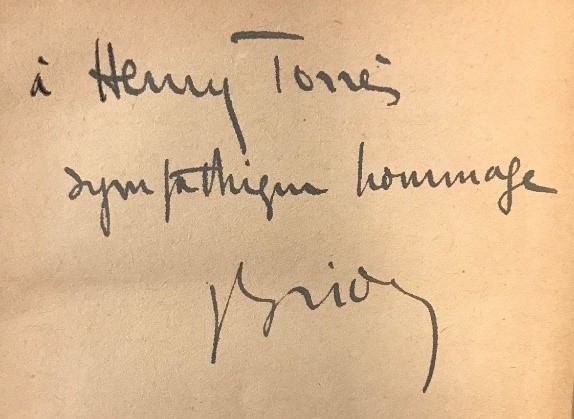 à Henry Torrès
sympathique hommage